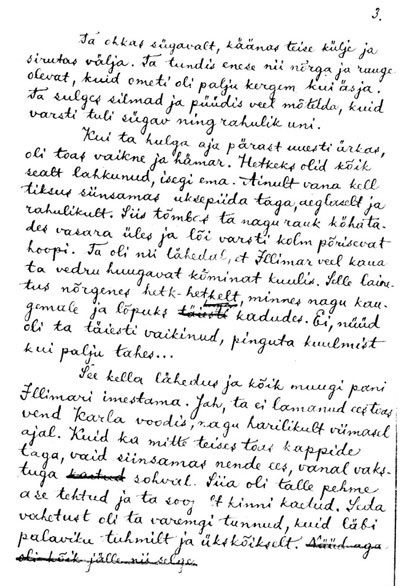 3.
Ta ohkas sügavalt, käänas teise külje ja
sirutas välja. Ta tundis enese nii nõrga ja rauge
olevat, kuid ometi oli palju kergem kui äsja.
Ta sulges silmad ja püüdis veel mõtelda, kuid
varsti tuli sügav ning rahulik uni.
Kui ta hulga aja pärast uuesti ärkas,
oli toas vaikne ja hämar. Hetkeks olid kõik
sealt lahkunud, isegi ema. Ainult vana kell
tiksus siinsamas uksepiida taga, aeglaselt ja
rahulikult. Siis tõmbas ta nagu rauk köhata-
des vasara üles ja lõi varsti kolm põrisevat
hoopi. Ta oli nii lähedal, et Illimar veel kaua
ta vedru huugavat kõminat kuulis. Selle laine-
tus nõrgenes hetk-hetkelt, minnes nagu kau-
gemale ja lõpuks täiesti kadudes. Ei, nüüd
oli ta täiesti vaikinud, pinguta kuulmist
kui palju tahes...
See kella lähedus ja kõik muugi pani
Illimari imestama. Jah, ta ei lamanud eestoas
vend Karla voodis, nagu harilikult viimasel
ajal. Kuid ka mitte teises toas kappide
taga, vaid siinsamas nende ees, vanal vaks-
tuga kaetud sohval. Siia oli talle pehme
ase tehtud ja ta soojalt kinni kaetud. Seda
vahetust oli ta varemgi tunnud, kuid läbi
palaviku tuhmilt ja ükskõikselt. Nüüd aga
oli kõik jälle nii selge.